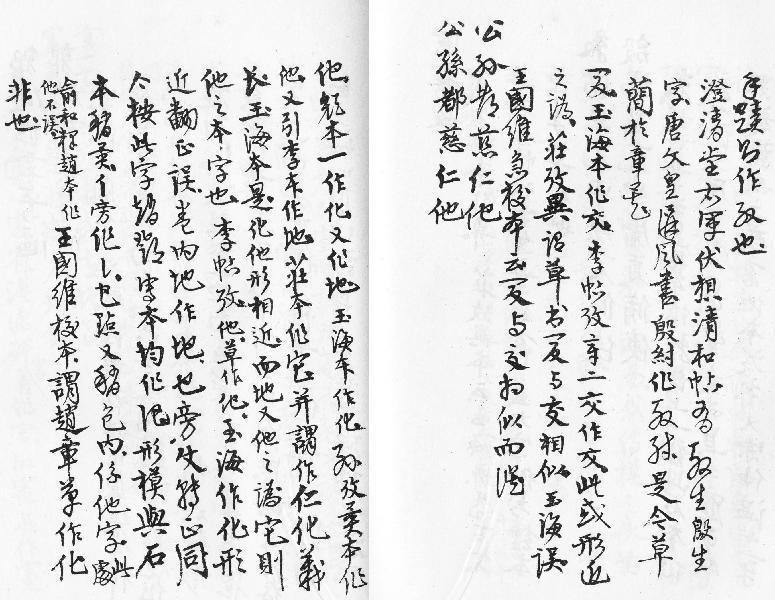 手蹟別作殷也
澄清堂右軍伏想清和帖為殷生殷生
字唐太宗屏風書殷紂作殷殊是今草
蘭於章草
夏玉海本作交李帖攷辛二交作交此或形近
之譌莊攷異謂草书夏与交相似玉海誤
王國維急校本云夏与交相似而誤
公孙都慈仁他
公孫都慈仁他
他皇本一作化又作地玉海本作化孙攷異本作
他又引李本作地莊本作它并謂作仁化義
长玉海本是化他形相近而地又他之譌它則
他之本字也李帖攷他草作化玉海作化形
近翻正誤卷内地作地也旁文特正同
今按此字趙鄧宋本均作化形模與石
本稍異亻旁作乚也點又稍包内係他字此處
俞和釋趙本作他不誤王國維校本謂趙章草作化
非也